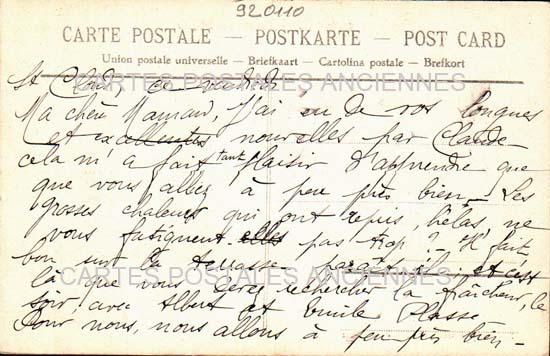 920110
CARTE POSTALE - POSTKARTE - POST CARD
Union postale universelle - Briefkaart - Cartolina postale - Brefkort
CARTES POSTALES ANCIENNES
St Cloud ce vendredi
Ma chère Maman, J'ai eu de vos longues
et excellentes nouvelles par Claude
cela m'a fait tant plaisir d'apprendre que
que vous allez à peu près bien. Les
grosses chaleurs qui ont repris, hélas, ne
vous fatiguent elles pas trop ? Il fait
bon sur la terrasse paraît-il et c'est
CARTES POSTALES ANCIENNES
là que vous rechercher la fraîcheur, le
soir, avec Albert et Emile Plasse
Pour nous, nous allons à peu près bien.